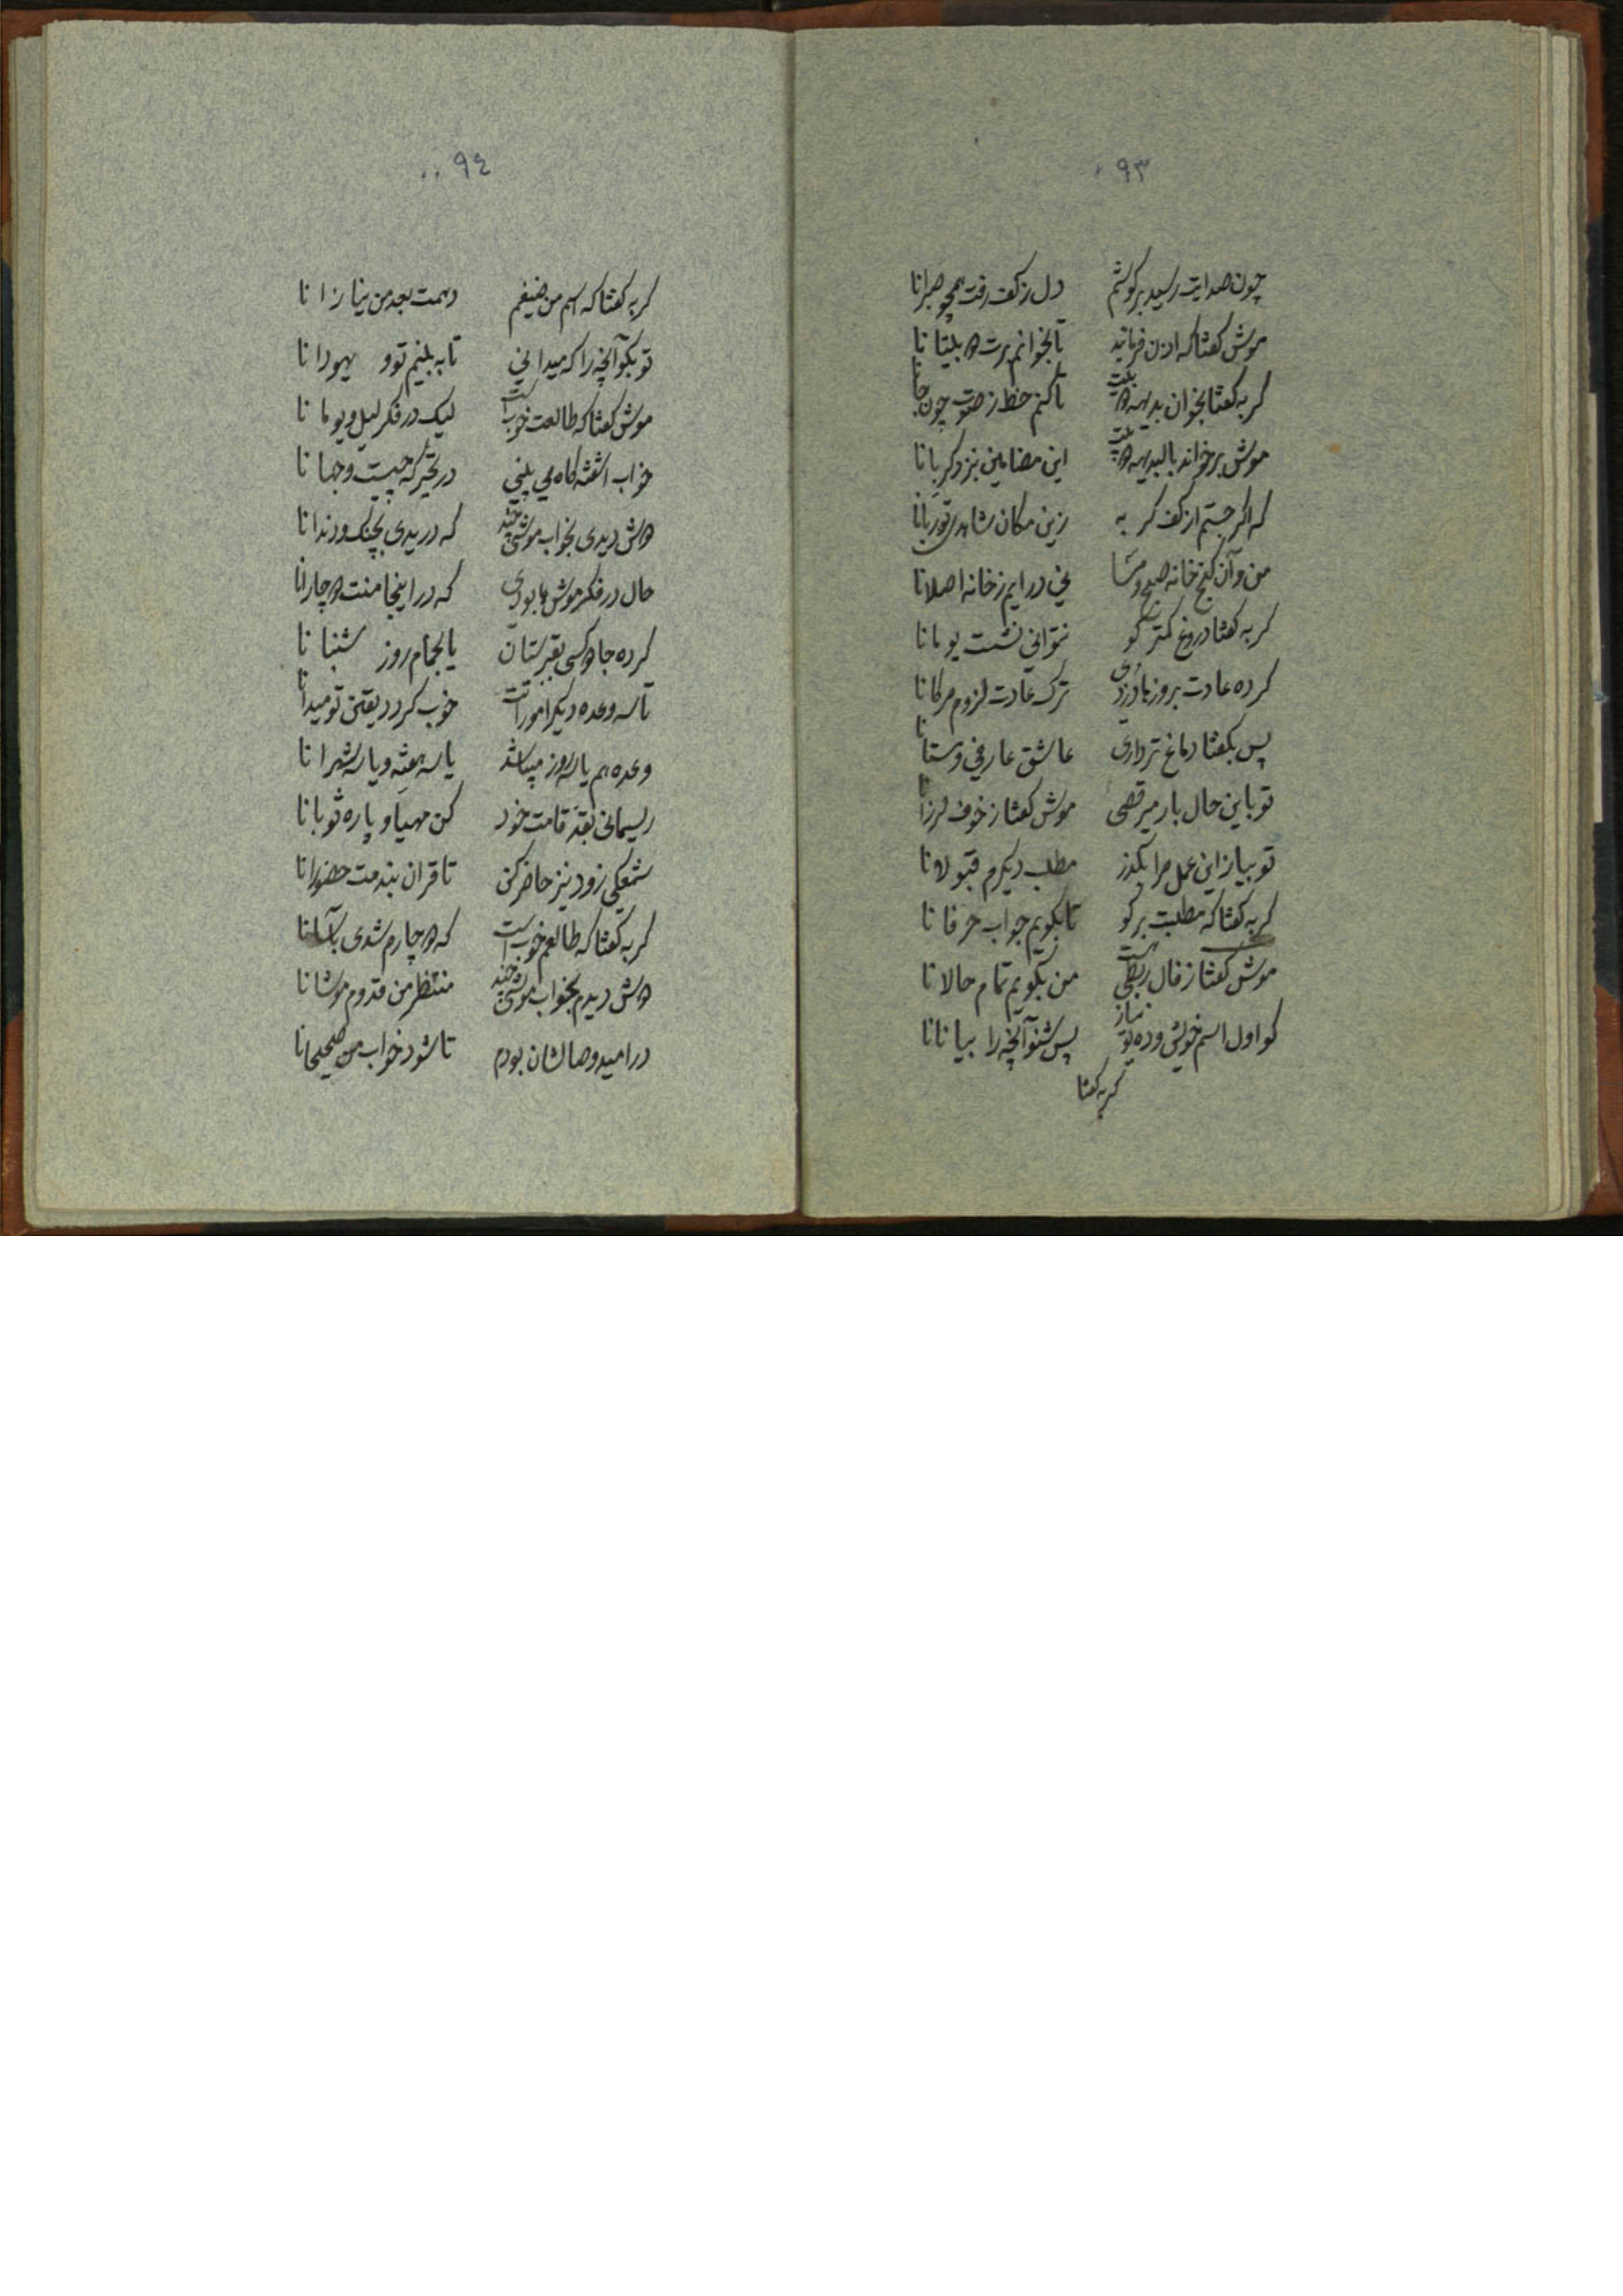 ۹۳
چون صدایت رسید بر کوشم دل ز کف رفت همچو صبرانا
موش کفتا که اذن فرمائید تا بخوانم برت دو بیتانا
کربه کفتا بخوان بدیهه دو بیت تا کنم حظ ز صوت چون جانا
موش برخواند بالبدیهه دو بیت این مضامین بنزد کربانا
که اکر جستم از کف کربه زین مکان شاهدی تو ربانا
من و آن کنج خانه صبح و مسا نی درایم ز خانه اصلانا
کربه کفتا دروغ کمتر کو نتوانی نشست یومانا
کرده عادت بروزها دزدی ترک عادت لزوم مرکانا
پس بکفتا دماغ تر داری عاشق عارفی و مستانا
تو باین حال بار میرقصی موش کفتا ز خوف لرزانا
تو بیا زاین عمل مرا بکذر مطلب دیکرم قبولانا
کربه کفتا که مطلبت بر کو تا بکویم جواب حرفانا
موش کفتا ز فال ربطی هست من بکویم تمام حالانا
کو اول اسم خویش و ده تو نیاز پس شنو آنچه را بیانانا
کربه کفتا
۹٤
کربه کفتا که اسم من ضیغم دهمت بعد من نیازانا
تو بکو آنچه را که میدانی تا به بینم تو و یهودانا
موش کفتا که طالعت خوب است لیک در فکر لیل و یومانا
خواب اشفته کاه می بینی در تحیر که چیست وجهانا
دوش دیدی بخواب موشی چند که دریدی بچنک و دندانا
حال در فکر موش ها بودی که در اینجا منت دچارانا
کرده جادو کسی بقبرستان یا بحمام روز شنبانا
تا سه وعده دیکر امورات خوب کردد یقین تو میدانا
وعده هم یا سه روز میباشد یا سه هفته و یا سه شهرانا
ریسمانی بقد قامت خود کن مهیا و پاره ثوبانا
شمعکی زود نیز حاضر کن تا قران بندمت حضورانا
کربه کفتا که طالعم خوب است که دچارم شدی بآسانا
دوش دیدم بخواب موشی چند منتظر من قدوم موشانا
در امید وصالشان بودم تا شود خواب من صحیحانا